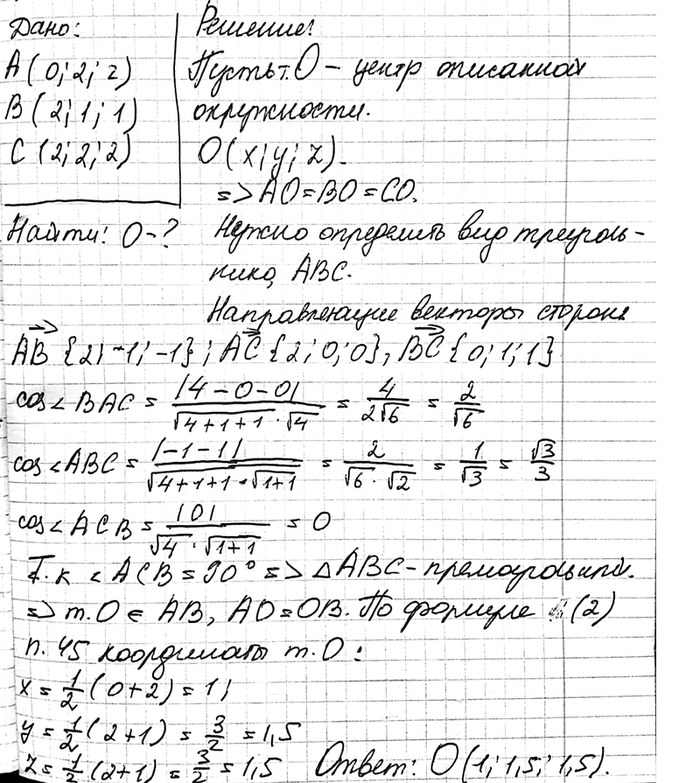 Дано:
A(0; 2; 2)
B(2; 1; 1)
C(2; 2; 2)
Найти: O-?
Решение:
Пусть т. O – центр описанной
окружности.
O(x; y; z).
=> AO = BO = CO.
Нужно определить вид треуголь-
ника ABC.
Направляющие векторы сторон
AB {2; -1; -1}; AC {2; 0; 0}, BC {0; 1; 1}
cos∠BAC = |4-0-0| / (√(4+1+1) · √4) = 4/(2√6) = 2/√6
cos∠ABC = |-1-1| / (√(4+1+1) · √(1+1)) = 2/(√6 · √2) = 1/√3 = √3/3
cos∠ACB = |0| / (√4 · √(1+1)) = 0
Т.к ∠ACB = 90° => △ABC - прямоугольный.
=> т. O ∈ AB, AO = OB. По формуле (2)
п. 45 координаты т. O:
x = 1/2 (0+2) = 1;
y = 1/2 (2+1) = 3/2 = 1,5
z = 1/2 (2+1) = 3/2 = 1,5
Ответ: O(1; 1,5; 1,5).